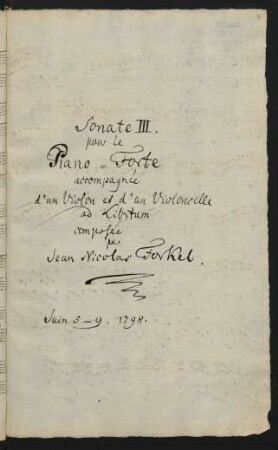 Sonate III.
pour le
Piano-Forte
accompagnée
d'un Violon et d'un Violoncelle
ad Libitum
composée
par
Jean Nicolas Forkel.
Juin 5-9. 1798.